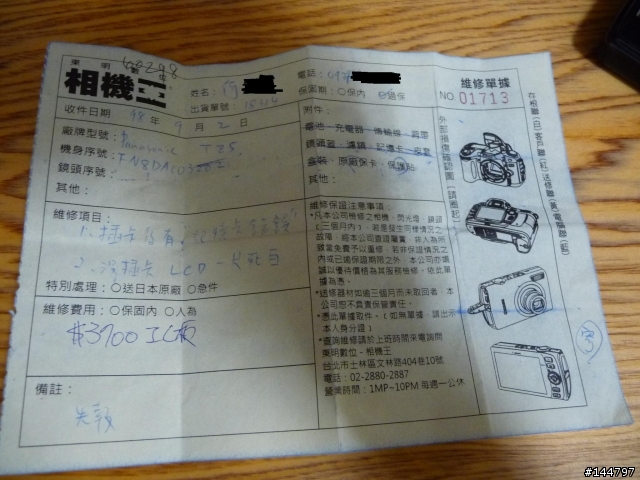 東明數位
相機王
姓名：
電話：
維修單據
出貨單號：
保固期：○保內 ○過保
NO. 01713
收件日期 98年 9月 2日
附件：
廠牌型號：Panasonic TZ5
電池．充電器．傳輸線．肩帶
機身序號：
鏡頭蓋．濾鏡．記憶卡．皮套
鏡頭序號：
盒裝．原廠保卡．保護貼
其他：
其他：
外部損傷確認圖（請圈起）
存根聯(白)客戶聯(紅)送修聯(黃)電腦聯(藍)
維修項目：
1. 插卡仍有"記憶卡錯誤"
2. 沒插卡 LCD 一片死白
特別處理：○送日本原廠 ○急件
維修費用：○保固內 ○人為
$3700 IC板
備註：
維修保證注意事項
*凡本公司檢修之相機、閃光燈、鏡頭
（三個月內），若是發生同樣情況之
故障，經本公司查證屬實，非人為所
致當免費予以重修，若非保證情況之
或已逾保固期限之外，本公司亦竭
誠以優待價格為其服務檢修，依此單
據為憑。
*送修器材如逾三個月而未取回者，本
公司恕不負責保管責任。
*憑此單據取件。（如無單據，請出示
本人身分證）
*查詢維修請於上班時間來電詢問
東明數位 - 相機王
台北市士林區文林路404巷10號
電話：02-2880-2887
營業時間：1MP~10PM 每週一公休
#144797